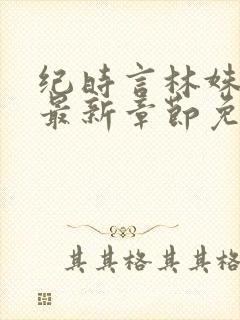 纪时言林妹
最新章节免
其其格其其格